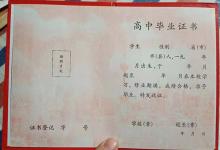 高中毕业证书
学生 性别 省(市)
市(县)人,一九 年
月出生,于 年 月
起至 年 月在本校学
习,修业期满,成绩合格,准予
毕业。特发此证。
证书登记 字 号
学校(章) 校长(章)
年 月 日